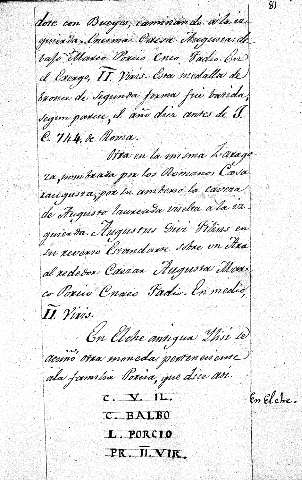 81
dote con Bueyes, caminando a la iz
quierda. Encima Caesar Augusta: de
bajo Marco Porcio Cneo Fadio. En
el Exergo, II Viris. Esta medalla de
bronce de segunda forma fué batida,
segun parece, el año diez antes de J.
C. 744. de Roma.
Otra en la misma Zarago
za, nombrada por los Romanos Caesa
raugusta, por su anberso la caveza
de Augusto laureada vuelta á la iz
quierda. Augustus Divi Filius en
su reverso Estandarte sobre un Ara
al rededor Caesar Augusta Mar
co Porcio Cnaeo Fadio. En medio,
II Viris.
En Elche antigua Ilici se
acuñó otra moneda perteneciente
a la familia Porcia, que dice asi.
C. V. IL.
En Elche.
C. BALBO
L. PORCIO
PR. II. VIR.